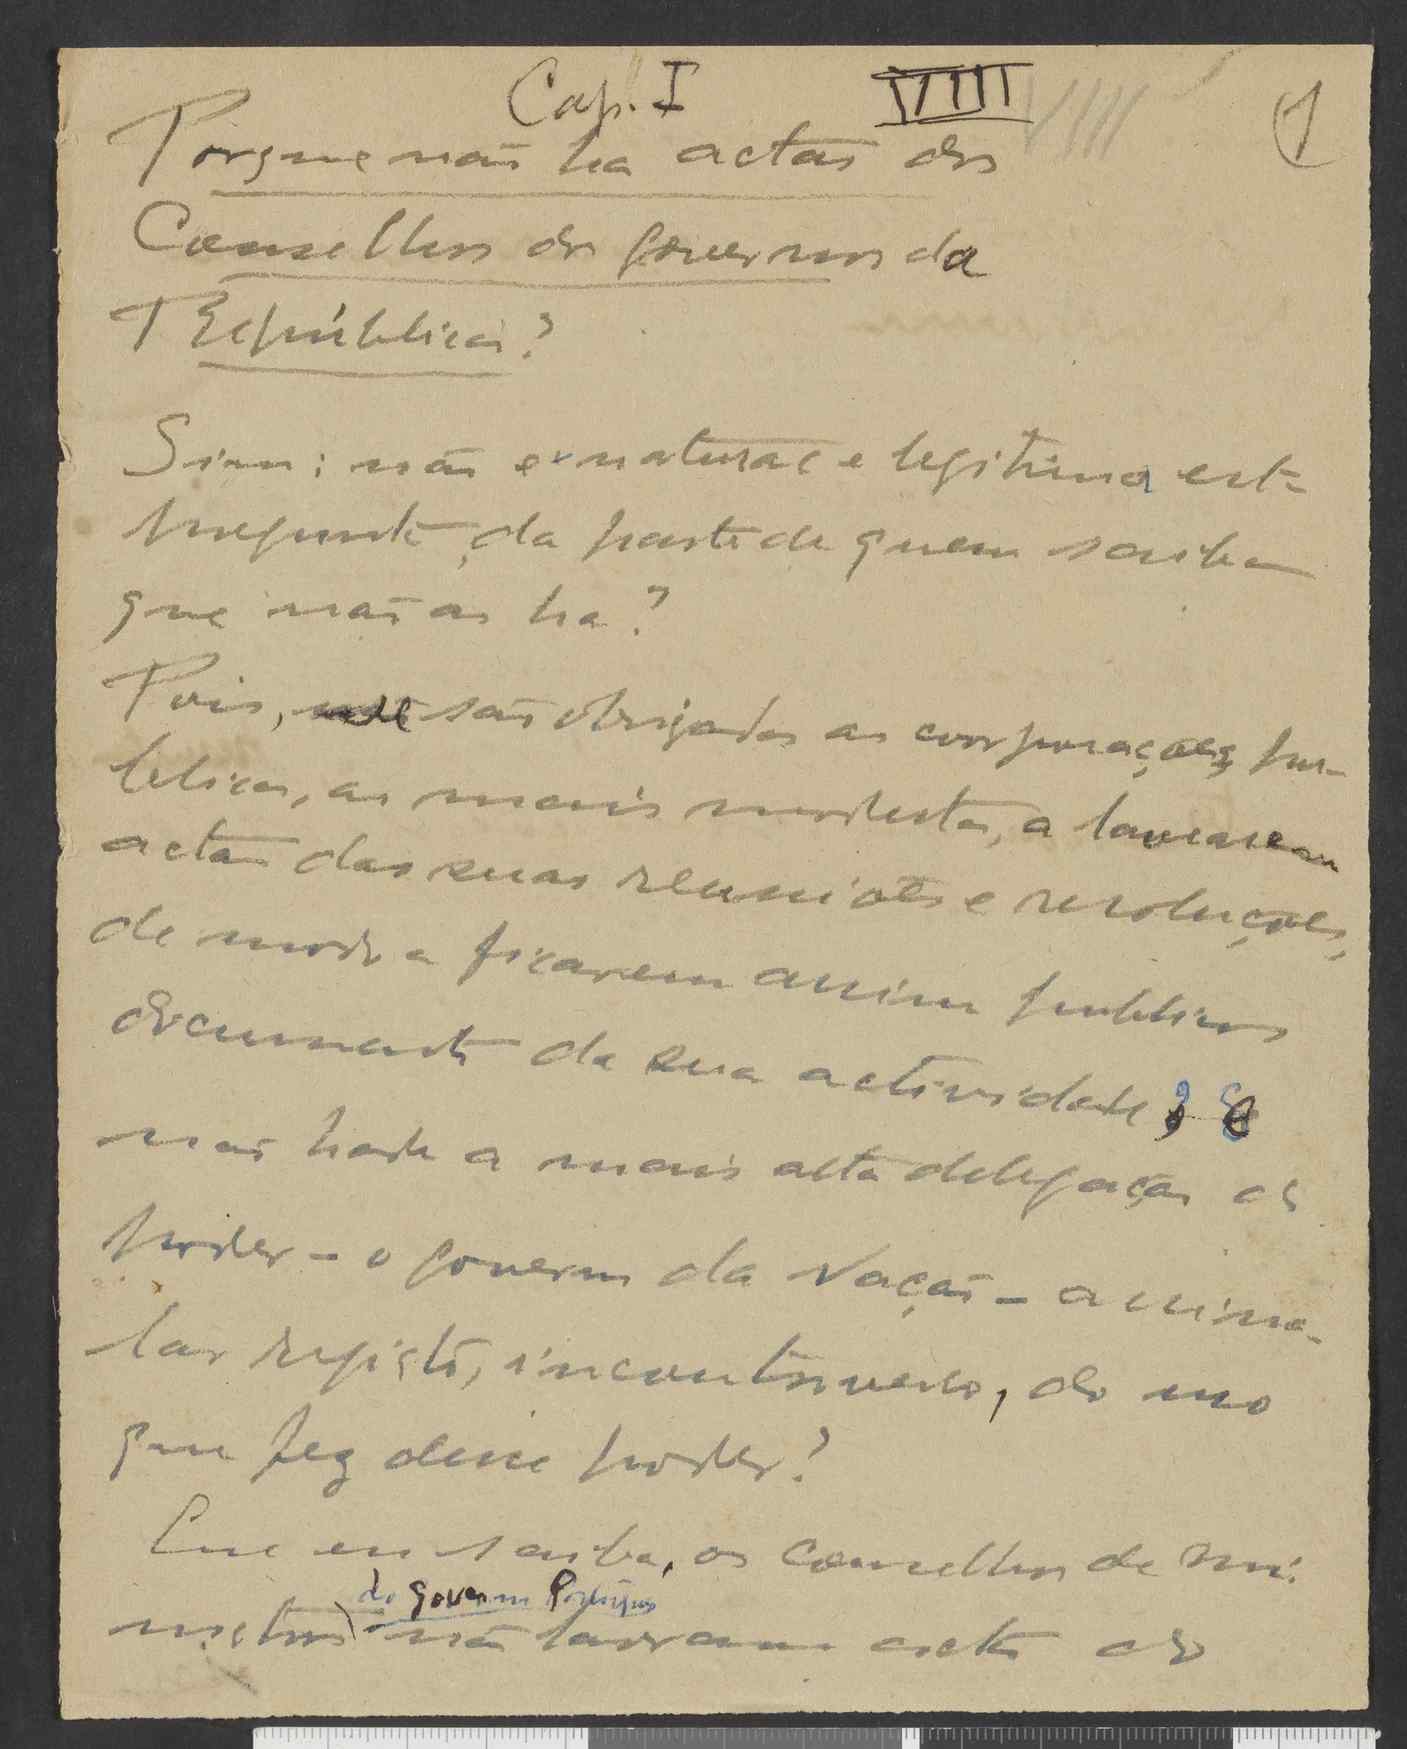 Cap. I VIIII VIIII 1
Porque não ha actas dos
Conselhos do governo da
República?
Sim: não é natural e legitima esta
pregunta, da parte de quem saiba
que não as ha?
Pois, não são obrigadas as corporações pu-
blicas, as mais modestas, a lavrarem
actas das suas reuniões e resoluções,
de modo a ficarem assim publicos
documentos da sua actividade; e
não hade a mais alta delegação do
poder - o governo da Nação - assina-
lar registo, incontroverso, do uso
que fez desse poder?
Que eu saiba, os conselhos de mi-
do governo Português
nistros não lavram acta do